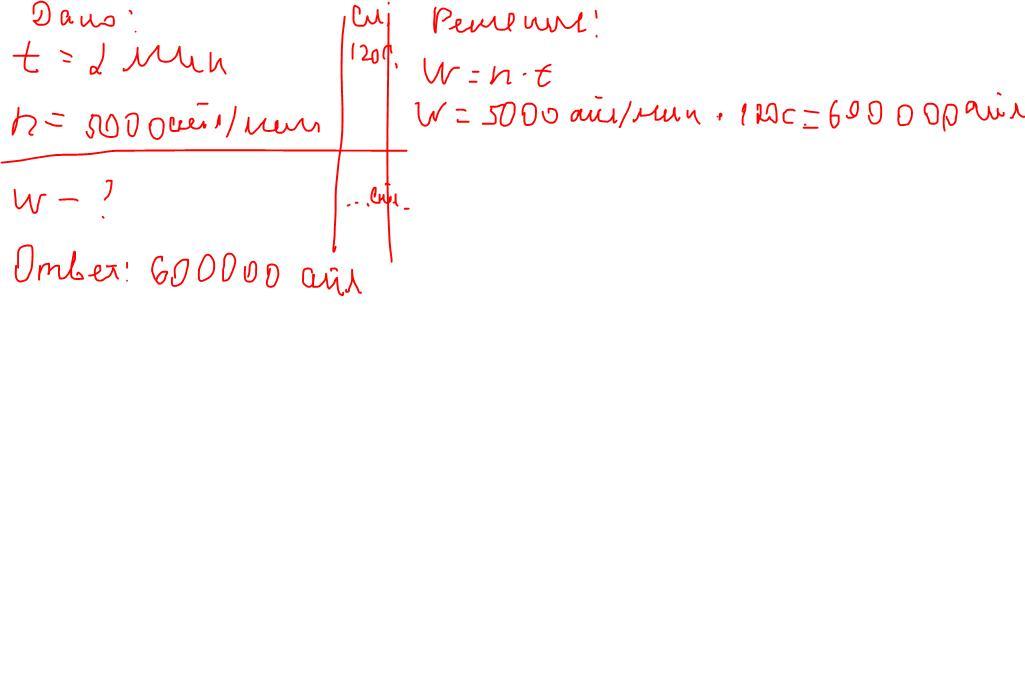 Дано:
t = 2 мин
n = 5000 айл/мин
W - ?
Ответ: 600000 айл
Си
120с.
Решение:
W = n · t
W = 5000 айл/мин · 120с = 600000 айл